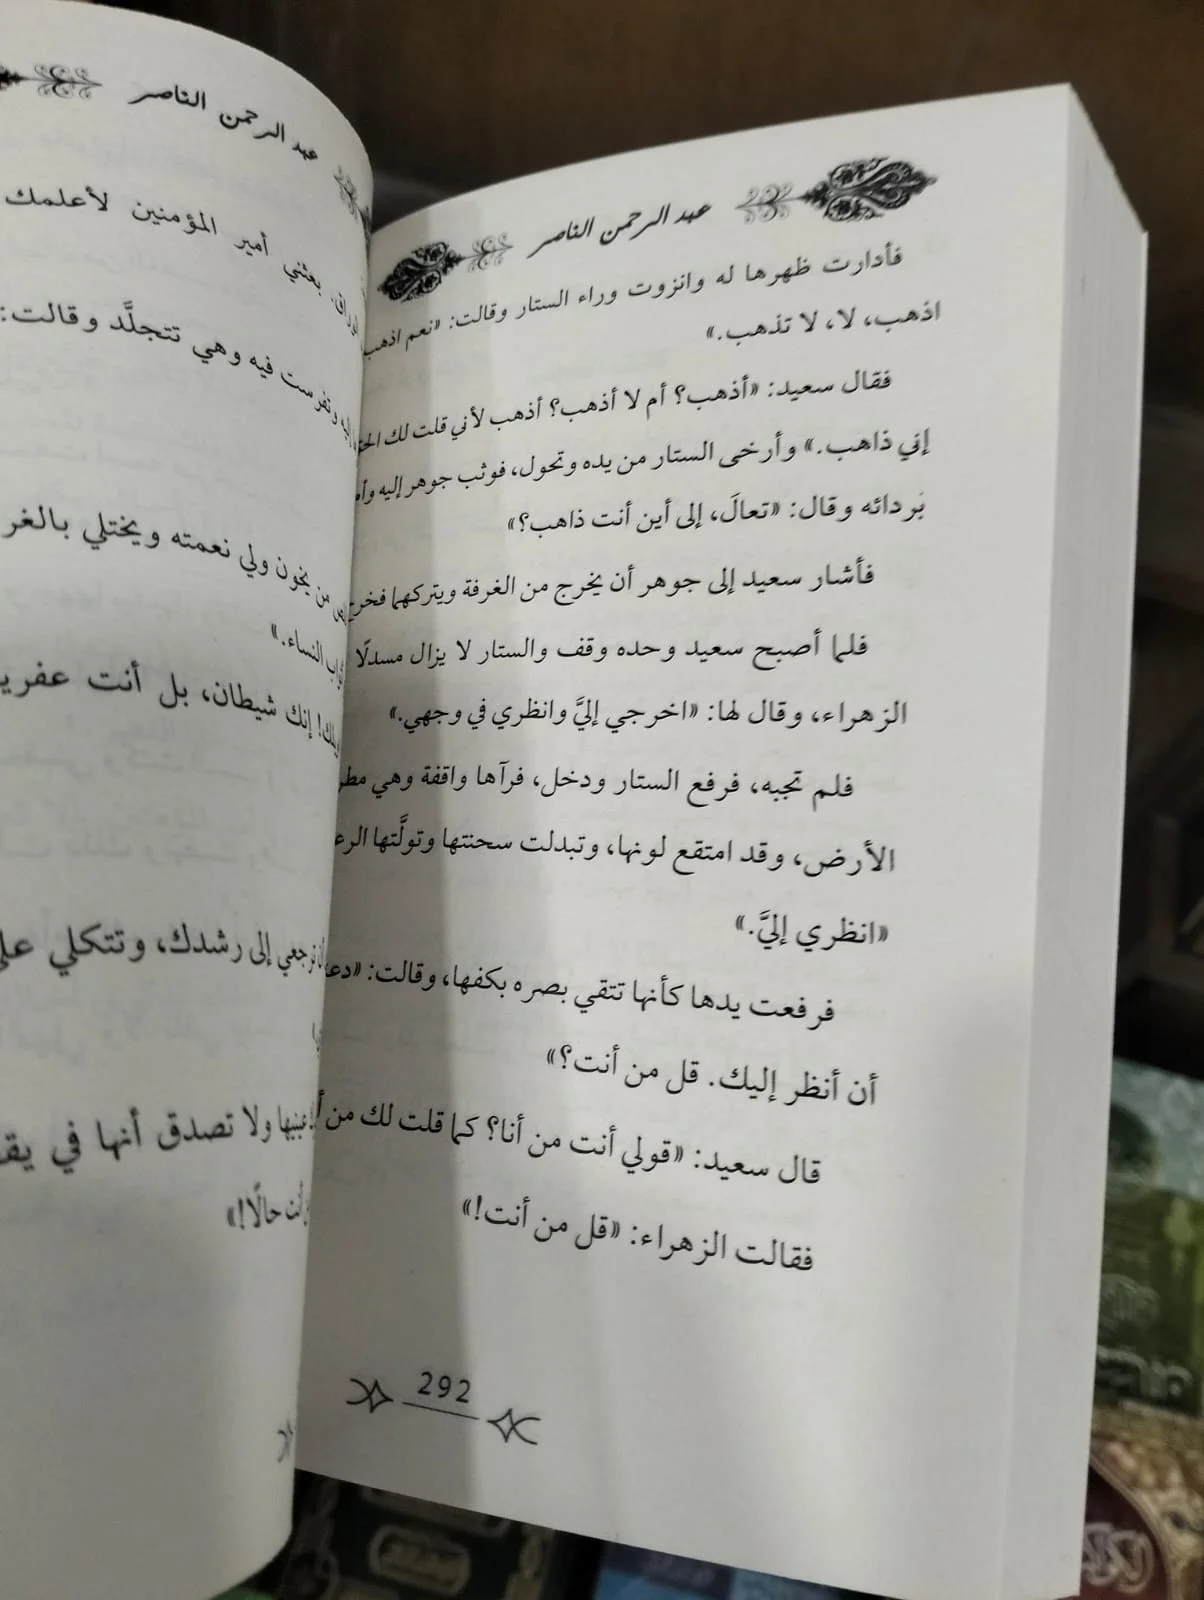 عبد الرحمن الناصر
فأدارت ظهرها له وانزوت وراء الستار وقالت: «نعم اذهب
اذهب، لا، لا تذهب.»
فقال سعيد: «أذهب؟ أم لا أذهب؟ أذهب لأني قلت لك
إني ذاهب.» وأرخى الستار من يده وتحول، فوثب جوهر إليه
بَردائه وقال: «تعالَ، إلى أين أنت ذاهب؟»
فأشار سعيد إلى جوهر أن يخرج من الغرفة ويتركهما فخرج
فلما أصبح سعيد وحده وقف والستار لا يزال مسدلًا
الزهراء، وقال لها: «اخرجي إليَّ وانظري في وجهي.»
فلم تجبه، فرفع الستار ودخل، فرآها واقفة وهي
الأرض، وقد امتقع لونها، وتبدلت سحنتها وتولَّتها
«انظري إليَّ.»
فرفعت يدها كأنها تتقي بصره بكفها، وقالت:
أن أنظر إليك. قل من أنت؟»
قال سعيد: «قولي أنت من أنا؟ كما قلت لك من
فقالت الزهراء: «قل من أنت!»
292
عبد الرحمن الناصر
بعثني أمير المؤمنين لأعلمك
إليه وتفرست فيه وهي تتجلَّد وقالت:
من يخون ولي نعمته ويختلي
النساء.»
إنك شيطان، بل أنت
ترجعي إلى رشدك، وتتكلي
عينيها ولا تصدق أنها في
أنت حالًا!»